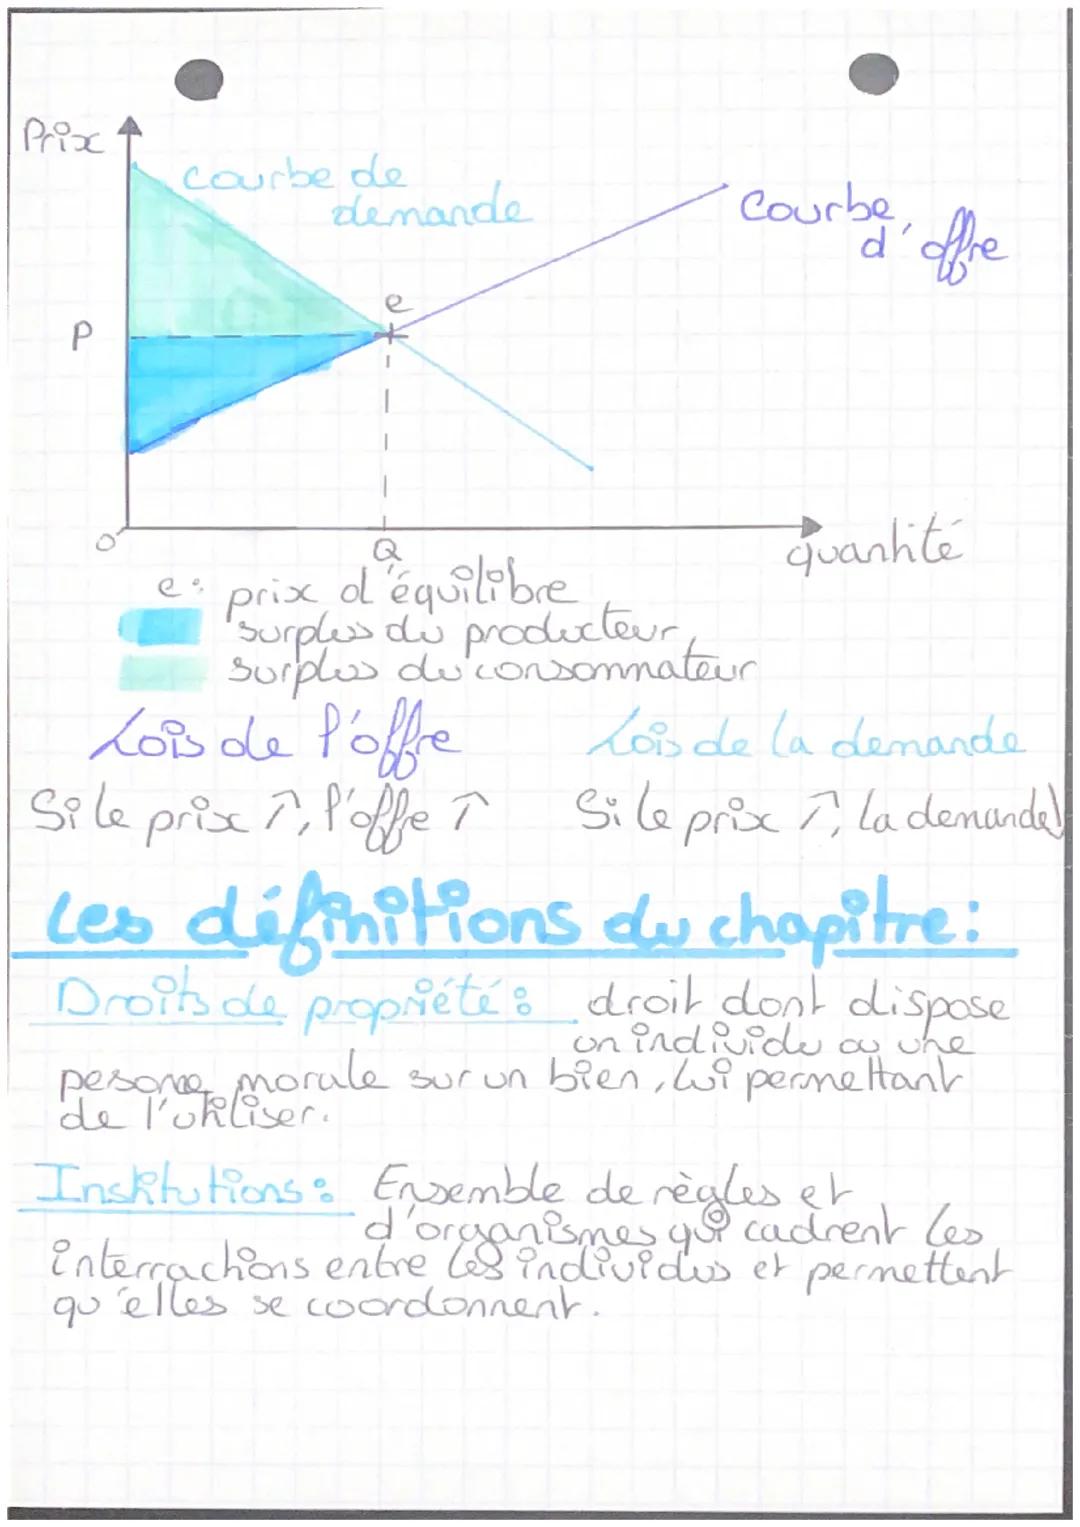 Prix
courbe de
demande
Courbe
d'offre
e
P
O
Q
quantité
e: prix d'équilibre
surplus du producteur
surplus du consommateur
Lois de l'offre
Lois de la demande
Si le prix ↗, l'offre ↗
Si le prix ↗, la demande ↘
Les définitions du chapitre:
Droits de propriété: droit dont dispose
un individu ou une
pesone morale sur un bien, lui permettant
de l'utiliser.
Institutions: Ensemble de règles et
d'organismes qui cadrent les
interractions entre les individus et permettent
qu'elles se coordonnent.